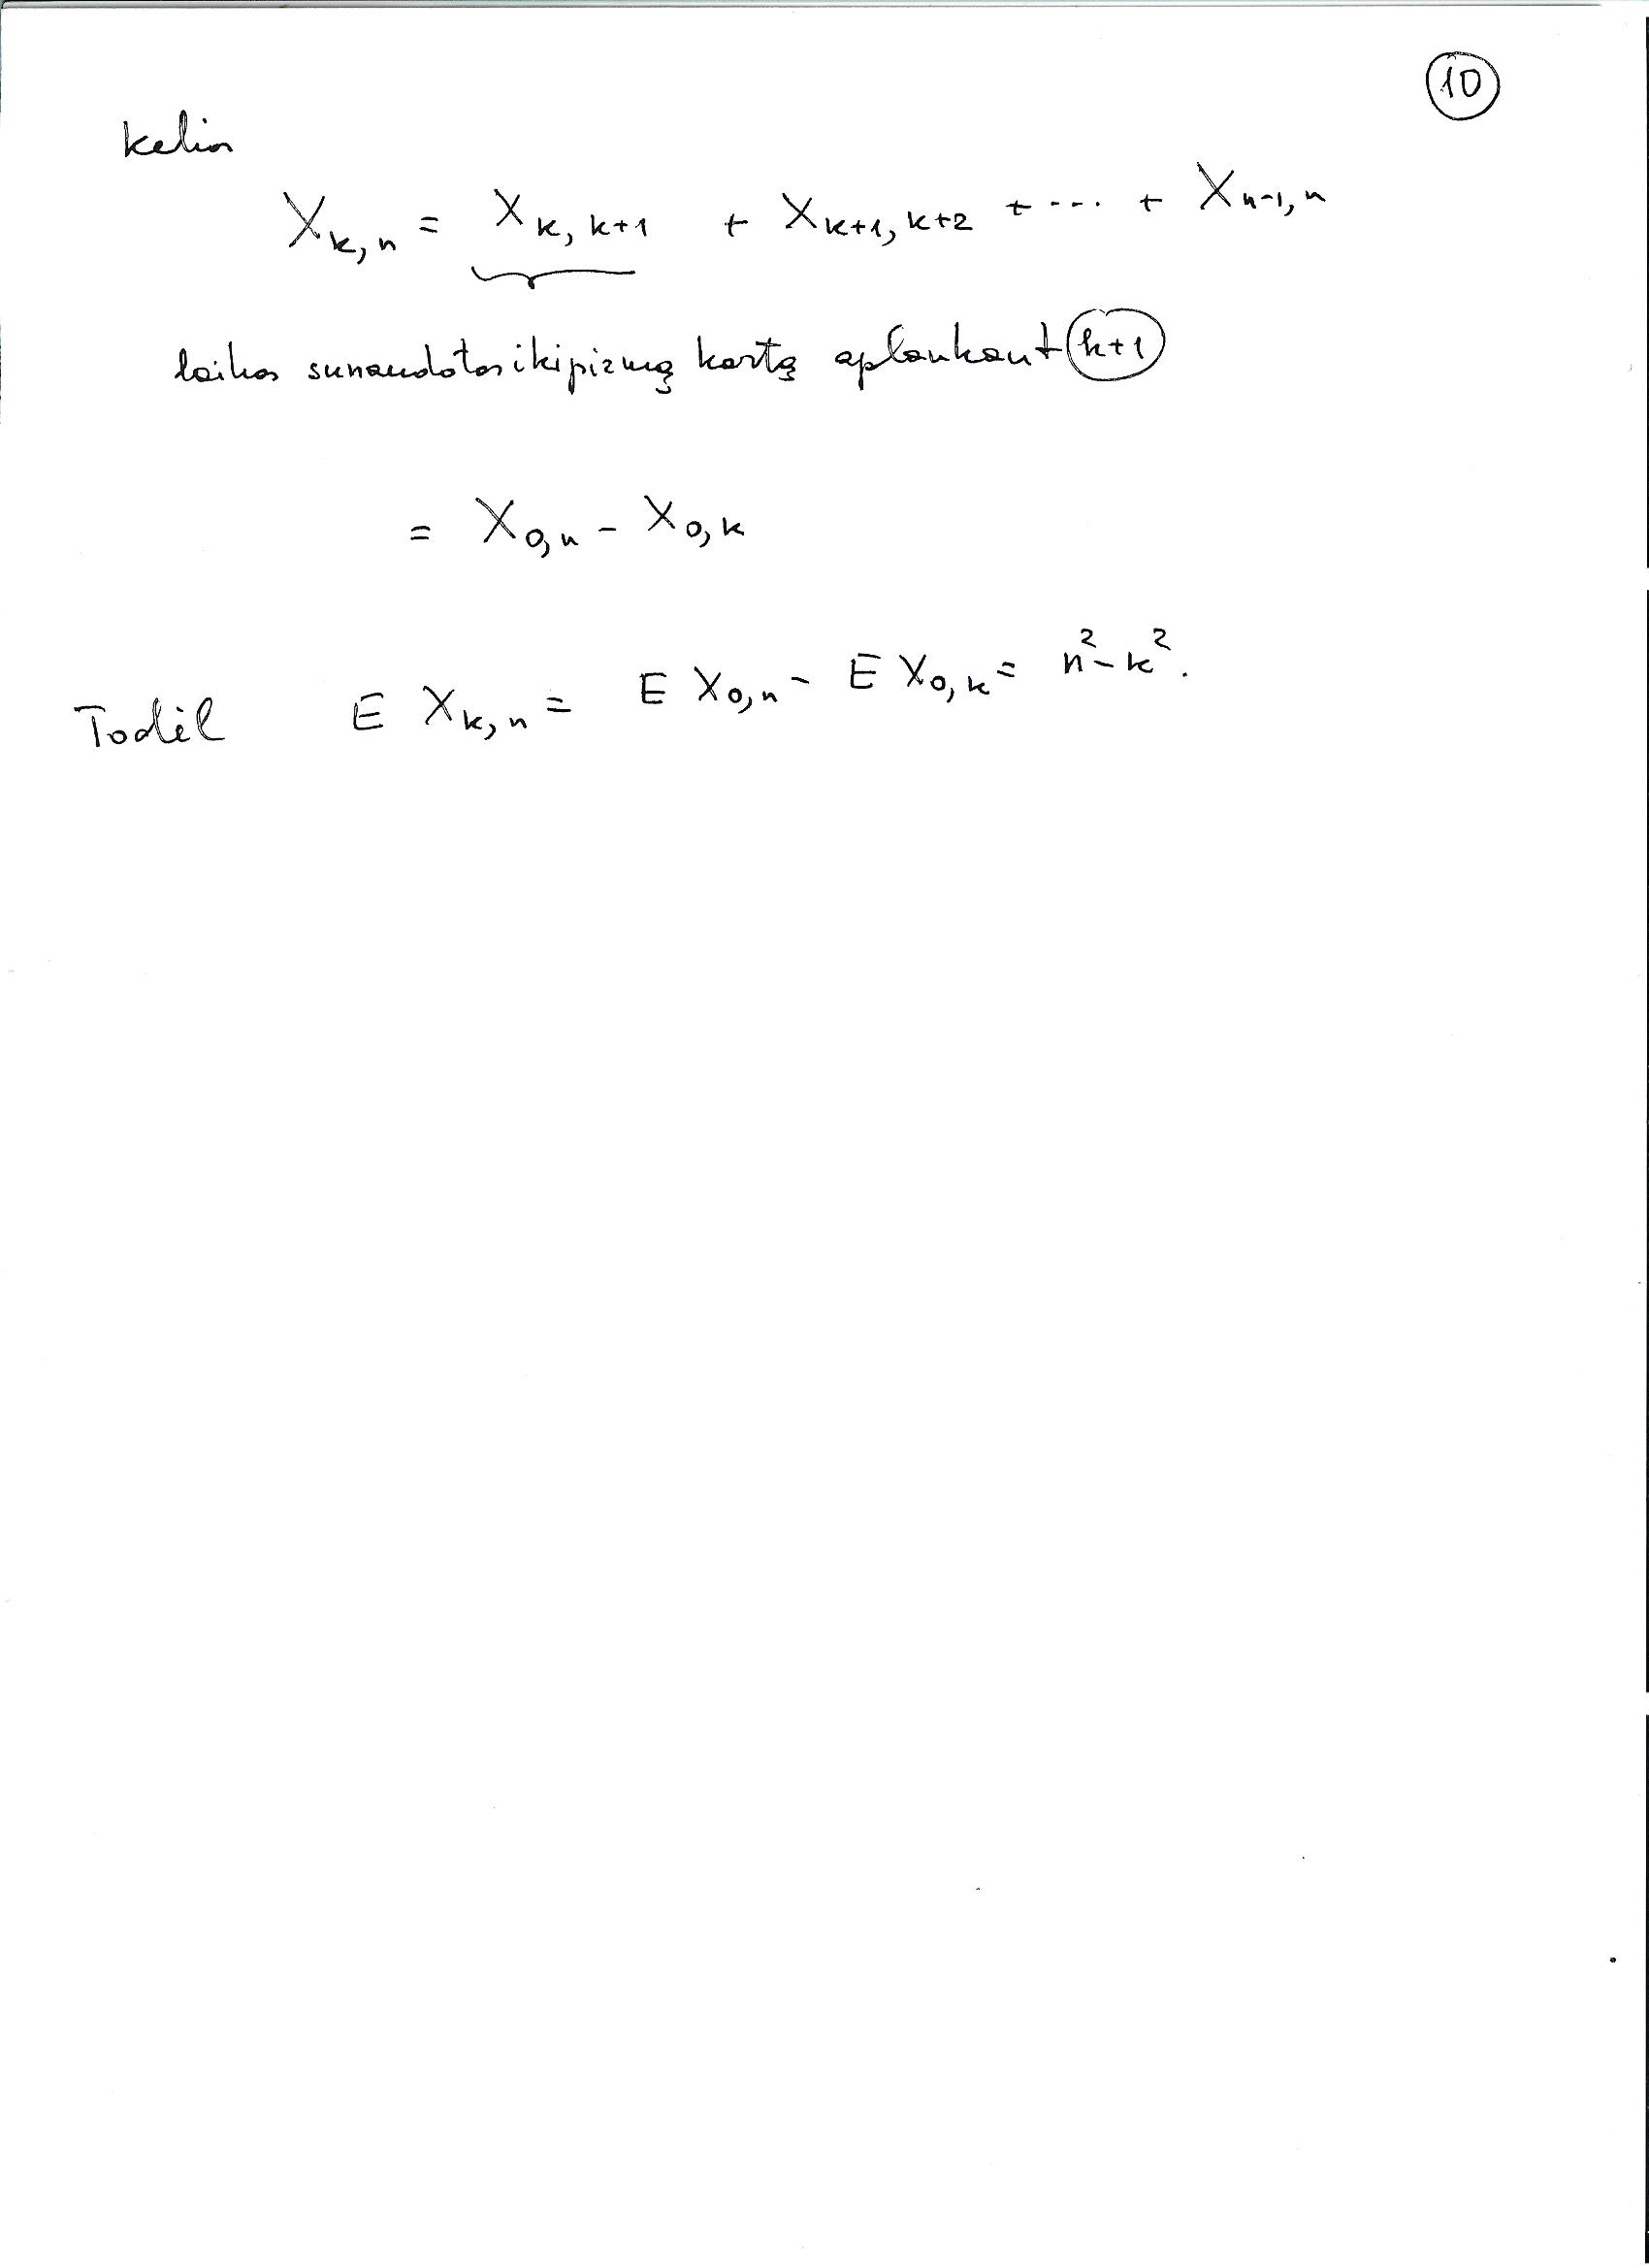 10
kelias
X_{k,n} = X_{k,k+1} + X_{k+1,k+2} + ... + X_{n-1,n}
laikas sunaudotas iki pirmą kartą aplankant k+1
= X_{0,n} - X_{0,k}
Todėl E X_{k,n} = E X_{0,n} - E X_{0,k} = n² - k².